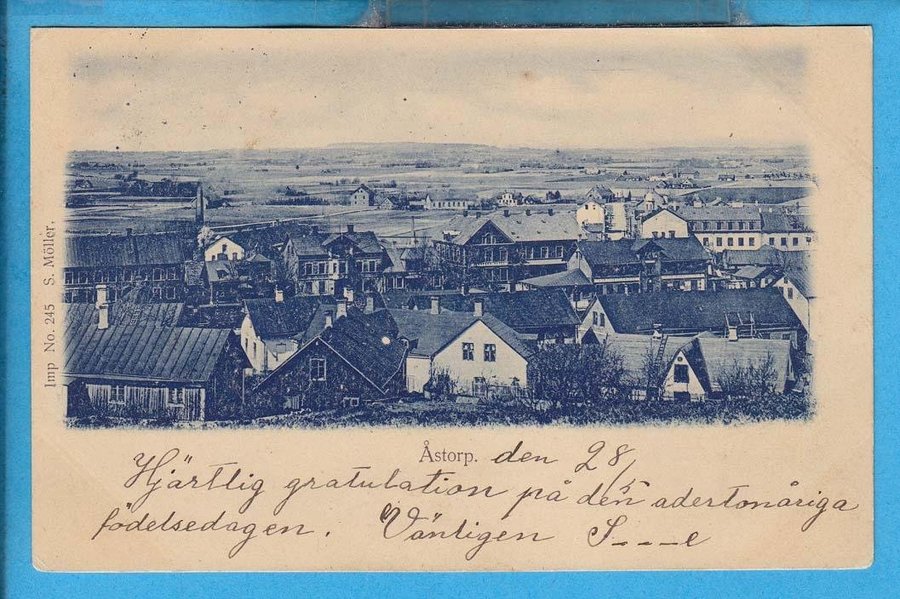 Imp No. 245 S. Möller,
Åstorp. den 28/5
Hjärtlig gratulation på den adertonåriga
födelsedagen. Vänligen S----e